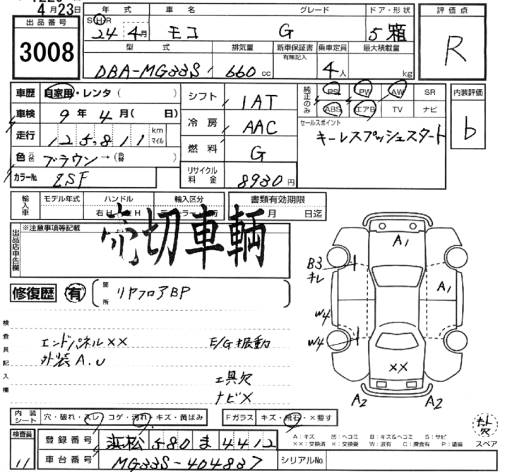 4月23日
出品番号 年式 車名 グレード ドア・形状 評価点
3008 S H R 24年 4月 モコ G 5 箱 R
型式 排気量 新車保証書 有無記入 乗車定員 最大積載量
DBA-MG33S 660 cc 4人 kg
車歴 自家用・レンタ( ) シフト 1AT 純正のみ PS PW AW SR 内装評価
車検 9年 4月( 日) ABS エアB TV ナビ b
走行 125,811 km マイル 冷房 AAC セールスポイント
キーレスプッシュスタート
色 ブラウン→ 燃料 G
カラーNo. ZSF リサイクル料金 8930円
輸入車 モデル年式 ハンドル 輸入区分 書類有効期限
年 右H 月 日迄
出品店申告欄 ※注意事項等記載
売切車輌
修復歴 有 箇所 リヤフロアBP
検査員記入欄
エンドパネル×× E/G振動
外装A.U
工具欠
ナビ×
A1
B3
キレ
A1
W4
W4
××
A2 A2
内装シート 穴・破れ・スレ コゲ・汚れ・キズ・黄ばみ Fガラス キズ・飛石・×要す
欠
スペア
検査員 登録番号 浜松 580 ま 4412
11 車台番号 MG33S-404837 シリアルNo.